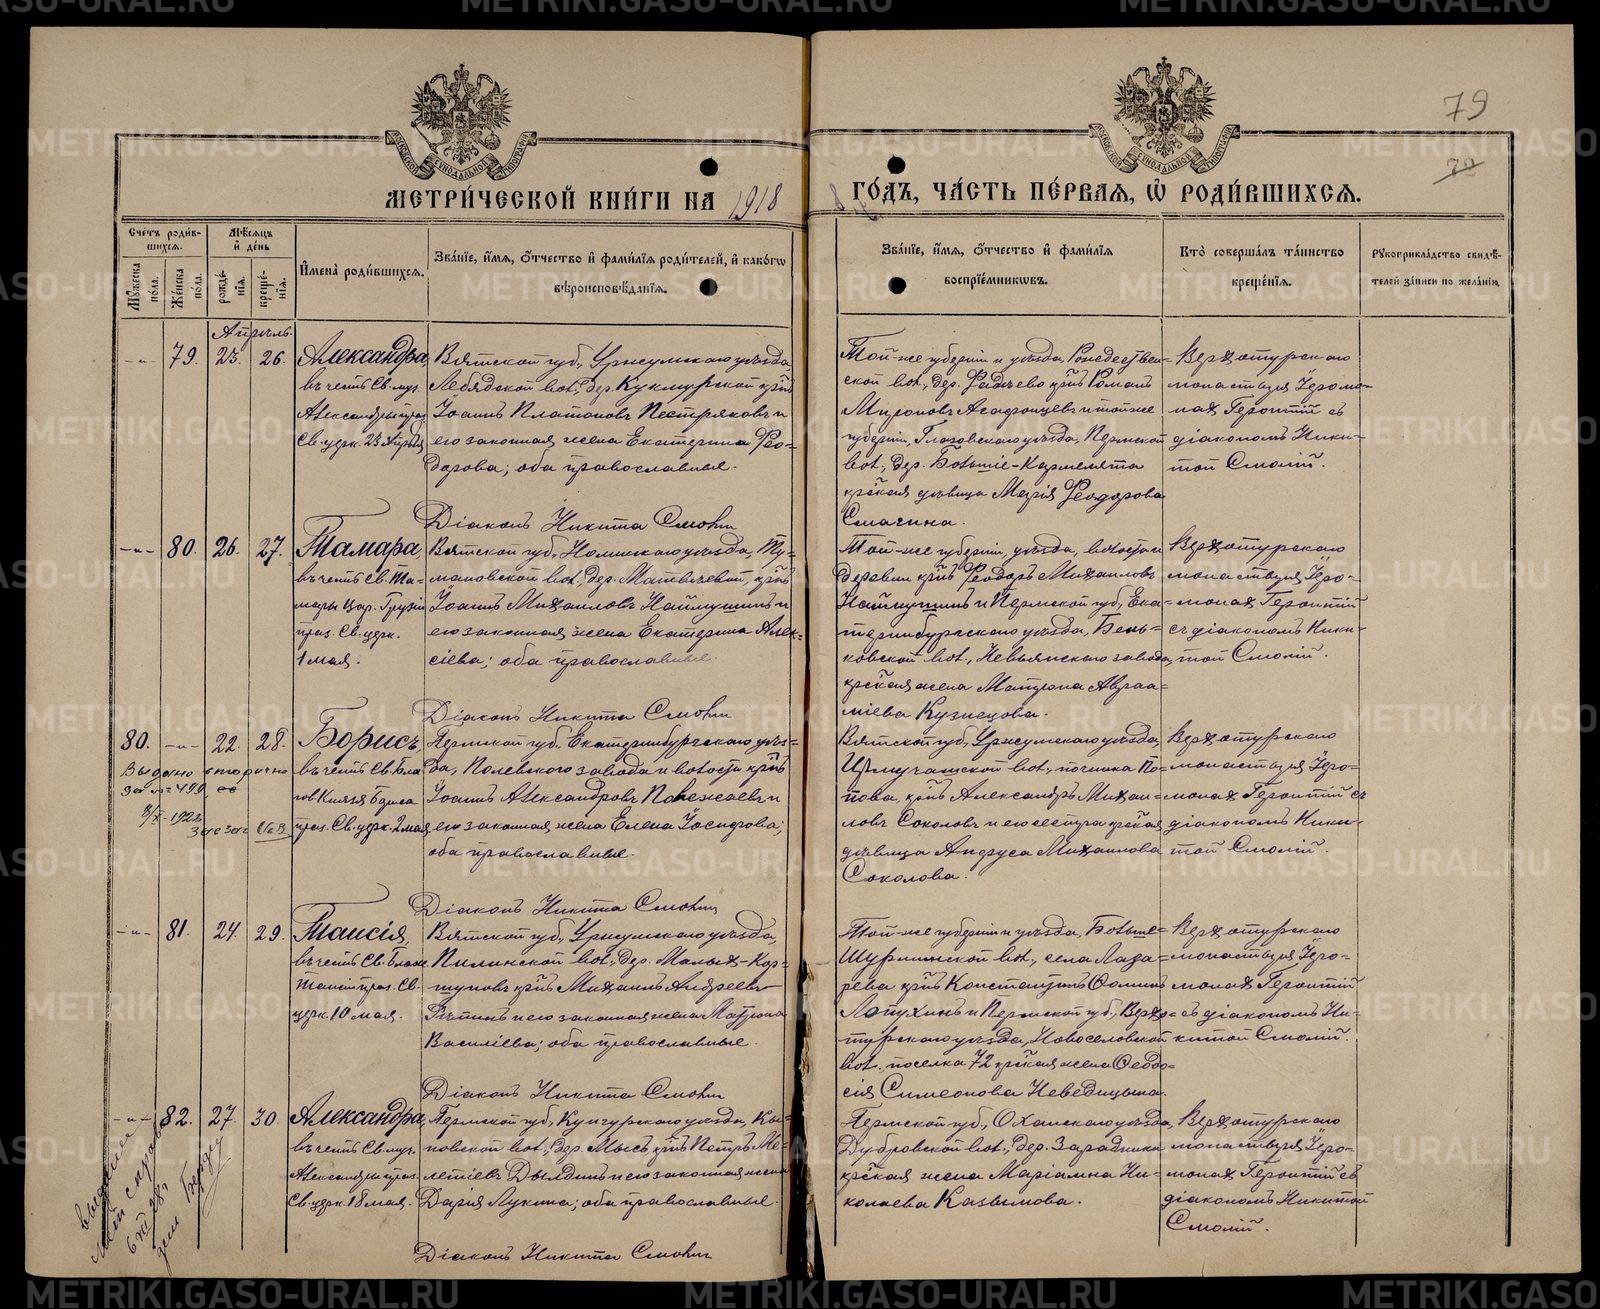 МЕТРИЧЕСКОЙ КНИГИ НА 1918
ГОДЪ, ЧАСТЬ ПЕРВАЯ, Ѿ РОДИВШИХСЯ.
79
Счетъ родив-
шихся.
Мужеска пола.
Женска пола.
Мѣсяцъ и день
рожде-
нія.
креще-
нія.
Имена родившихся.
Званіе, имя, отчество и фамилія родителей, и какогѡ
вѣроисповѣданія.
Званіе, имя, отчество и фамилія
воспріемниковъ.
Кто совершалъ таинство
крещенія.
Рукоприкладство свидѣ-
телей записи по желанію.
Апрѣль.
-"- 79. 23. 26.
Александра,
въ честь Св. муч.
Александры праз.
Св. церк. 23 Апрѣля
Вятской губ., Уржумскаго уѣзда,
Лебядской вол., дер. Кукмурской крнъ
Іоаннъ Платоновъ Пестряковъ и
его законная жена Екатерина Ѳео-
дорова; оба православные.
Діаконъ Никита Смолинъ
Той-же губерніи и уѣзда, Рождествен-
ской вол., дер.
крнъ Романъ
Мироновъ
и той же
губерніи, Глазовскаго уѣзда, Пермской
вол., дер. Большіе-Кармелята
крская дѣвица Марія Ѳеодорова
Смагина.
Верхотурскаго
монастыря Іеромо-
нах Геронтій съ
діакономъ Ники-
той Смолій.
-"- 80. 26. 27.
Тамара
въ честь Св. Та-
мары Цар. Грузіи
праз. Св. церк.
1 мая.
Вятской губ., Нолинскаго уѣзда, Ту-
мановской вол., дер.
крнъ
Іоаннъ Михаиловъ Наймушинъ и
его законная жена Екатерина Алек-
сіева; оба православные.
Діаконъ Никита Смолин
Той-же губерніи, уѣзда, волости и
деревни крнъ Ѳеодоръ Михаиловъ
Наймушинъ и Пермской губ., Ека-
теринбургскаго уѣзда, Бынь-
ковской вол., Невьянскаго завода,
крская жена Матрона Авраа-
міева Кузнецова.
Верхотурскаго
монастыря Іеро-
монах Геронтій
съ діакономъ Ники-
той Смолій.
80. -"- 22. 28.
Выдано вторично
за № 499
8/X - 1923
Борисъ,
въ честь Св. Бла-
гов. Князя Бориса
праз. Св. церк. 2 мая
Пермской губ. Екатеринбургскаго уѣз-
да, Полевского завода и волости крнъ
Іоаннъ Александровъ Полежаевъ и
его законная жена Елена Іосифова;
оба православные.
Діаконъ Никита Смолин
Вятской губ., Уржумскаго уѣзда,
вол., починка По-
пова, крнъ Александръ Михаи-
ловъ Соколовъ и его сестра крская
дѣвица
Михаилова
Соколова.
Верхотурскаго
монастыря Іеро-
монах Геронтій съ
діакономъ Ники-
той Смолій.
-"- 81. 24. 29.
Таисія,
въ честь Св. Блаж.
Таисіи праз. Св.
церк. 10 мая.
Вятской губ., Уржумскаго уѣзда,
Пилинской вол., дер. Малыхъ-Кор-
шуновъ крнъ Михаилъ Андреевъ
и его законная жена Матрона
Василіева; оба православные.
Діаконъ Никита Смолин
Той-же губерніи и уѣзда, Больше-
Шурминской вол., села Лаза-
рева крнъ Константинъ Ѳоминъ
Лопухинъ и Пермской губ., Верхо-
турскаго уѣзда, Новоселовской
вол. поселка 72 крская жена Ѳеодо-
сія Симеонова Неведицына.
Верхотурскаго
монастыря Іеро-
монах Геронтій
съ діакономъ Ни-
китой Смолій.
-"- 82. 27. 30.
Александра,
въ честь Св. муч.
Александры праз.
Св. церк. 18 мая.
Пермской губ., Кунгурскаго уѣзда, Кы-
новской вол., дер. Мысъ крнъ Петръ Ме-
летіевъ Дылдинъ и его законная жена
Дарія Лукина; оба православные.
Діаконъ Никита Смолин
Пермской губ., Оханскаго уѣзда,
Дубровской вол., дер.
крская жена Маріамна Ни-
колаева Казымова.
Верхотурскаго
монастыря Іеро-
монах Геронтій съ
діакономъ Никитой
Смолій.
METRIKI.GASO-URAL.RU